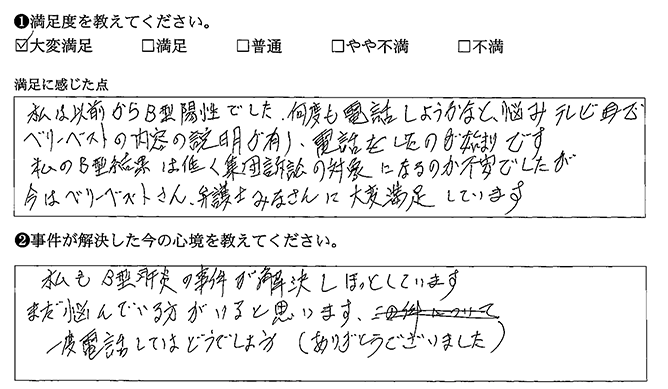 ❶満足度を教えてください。
☑大変満足 □満足 □普通 □やや不満 □不満
満足に感じた点
私は以前からB型陽性でした、何度も電話しようかなと、悩みテレビ
ベリーベストの内容の説明が有り、電話をしたのが始まりです
私のB型結果は低く集団訴訟の対象になるのか不安でしたが
今はベリーベストさん、弁護士みなさんに大変満足しています
❷事件が解決した今の心境を教えてください。
私もB型肝炎の事件が解決しほっとしています
まだ悩んでいる方がいると思います、この件について
一度電話してはどうでしょうか (ありがとうございました)